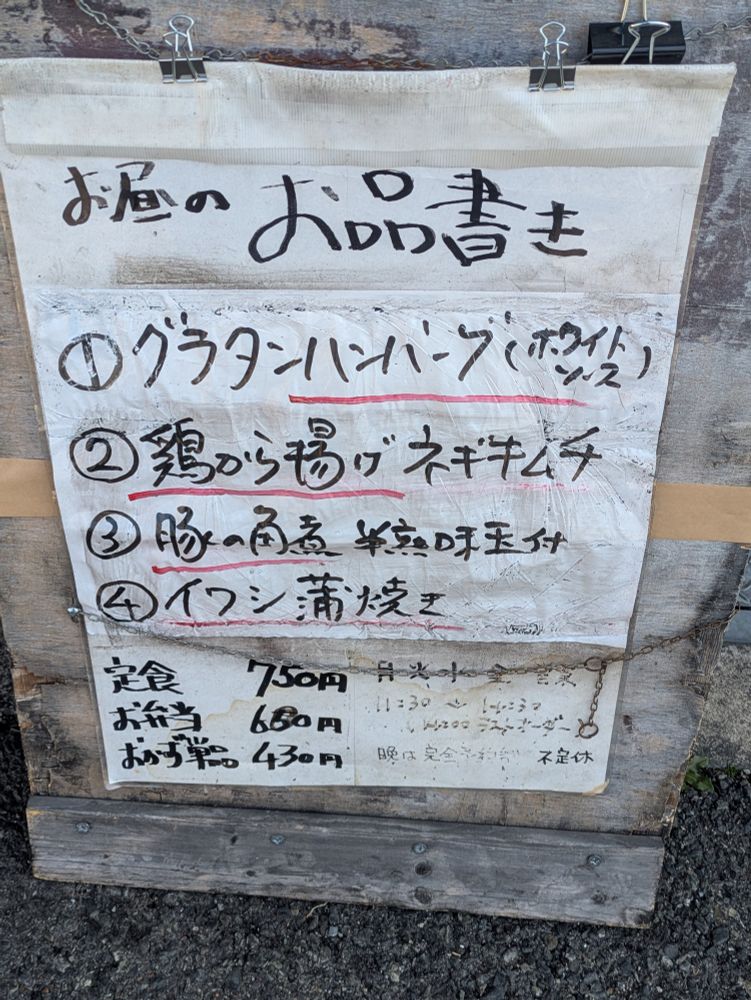 お昼の お品書き
① グラタンハンバーグ(ホワイトソース)
② 鶏から揚げ ネギキムチ
③ 豚の角煮 半熟味玉付
④ イワシ蒲焼き
定食 750円
お弁当 650円
おかず単品 430円
月火木金営業
11:30〜14:30
14:00ラストオーダー
晩は完全予約制 不定休